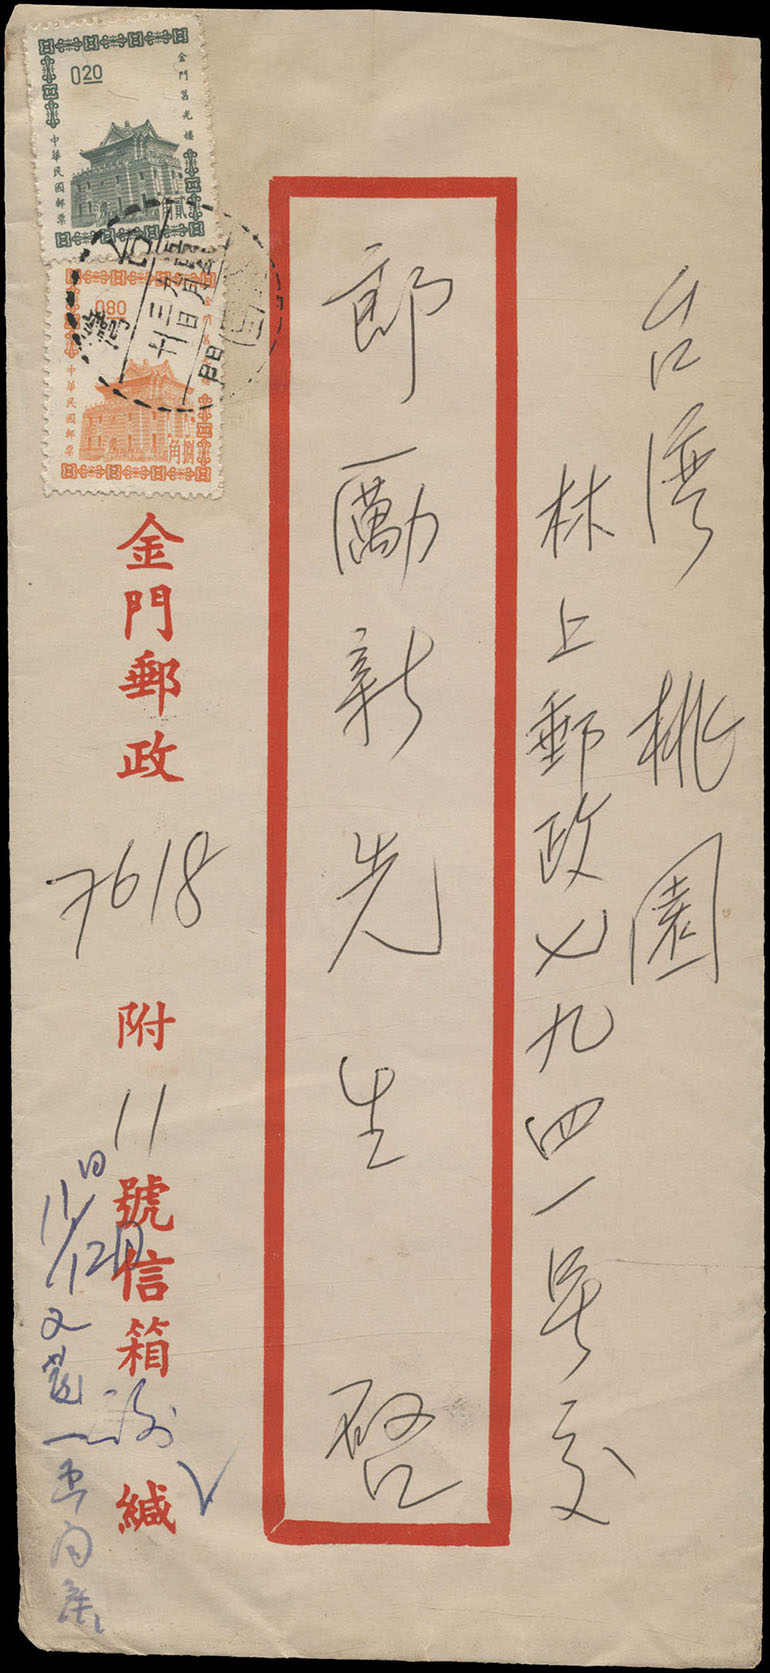 台灣 桃園
林上郵政七九四一号交
郎勵新先生 啓
金門郵政 7618 附 11 號信箱 謝 緘
0.20
金門莒光樓
中華民國郵票
貳
0.80
中華民國郵票
角捌
台灣
金門